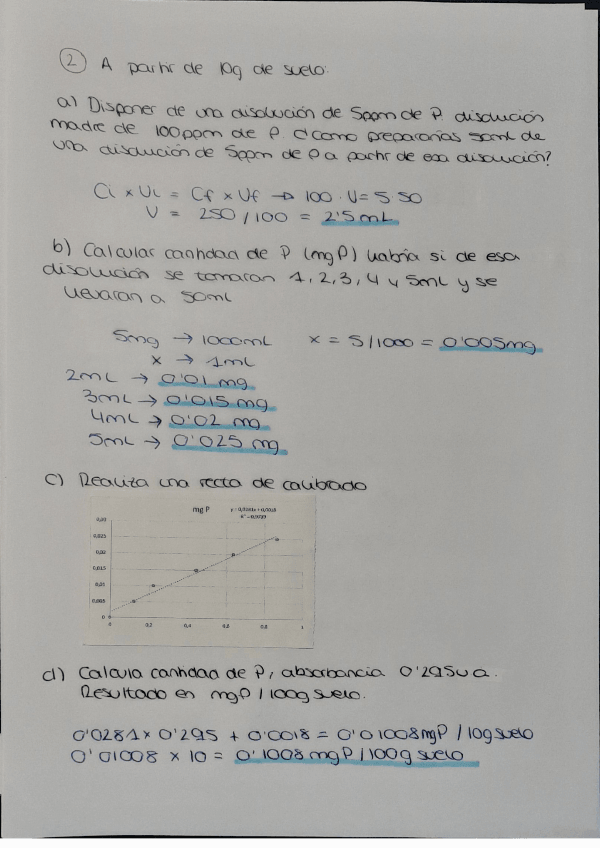 2 A partir de 10g de suelo.
a) Disponer de una disolución de 5ppm de P. disolución
madre de 100ppm de P. ¿Cómo prepararías 50mL de
una disolución de 5ppm de P a partir de esa disolución?
Ci x Vi = Cf x Vf → 100 · V = 5·50
V = 250/100 = 2'5mL
b) Calcular cantidad de P (mgP) habría si de esa
disolución se tomaran 1, 2, 3, 4 y 5mL y se
llevaran a 50mL
5mg → 1000mL x = 5/1000 = 0'005mg
x → 1mL
2mL → 0'01 mg
3mL → 0'015 mg
4mL → 0'02 mg
5mL → 0'025 mg
c) Realiza una recta de calibrado
mg P y = 0,0281x + 0,0018
0,03
0,025
0,02
0,015
0,01
0,005
0
0 0,2 0,4 0,6 0,8 1
d) Calcula cantidad de P, absorbancia 0'295 u a.
Resultado en mgP/100g suelo.
0'0281 x 0'295 + 0'0018 = 0'01008mgP/10g suelo
0'01008 x 10 = 0'1008 mgP/100g suelo